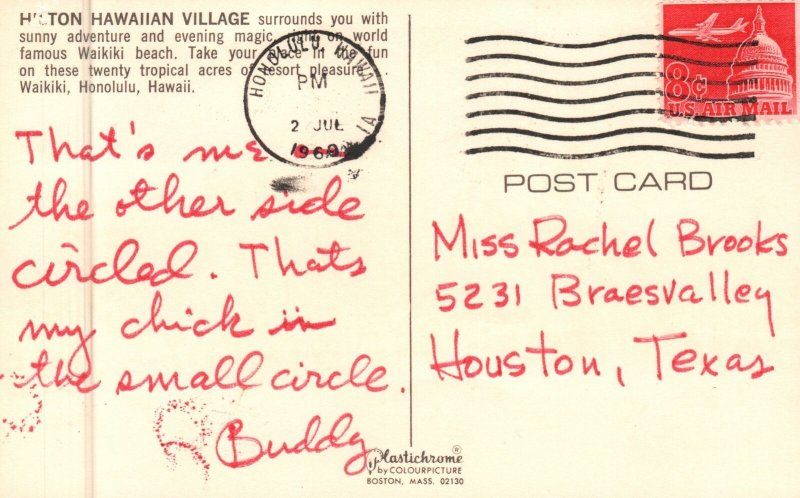 HILTON HAWAIIAN VILLAGE surrounds you with
sunny adventure and evening magic, right on world
famous Waikiki beach. Take your place in the fun
on these twenty tropical acres of resort pleasure.
Waikiki, Honolulu, Hawaii.
HONOLULU, HAWAII
PM
2 JUL
1969
1A
8¢
U.S. AIR MAIL
POST CARD
That's me
the other side
circled. Thats
my chick in
the small circle.
Buddy
Miss Rachel Brooks
5231 Braesvalley
Houston, Texas
Plastichrome®
by COLOURPICTURE
BOSTON, MASS. 02130